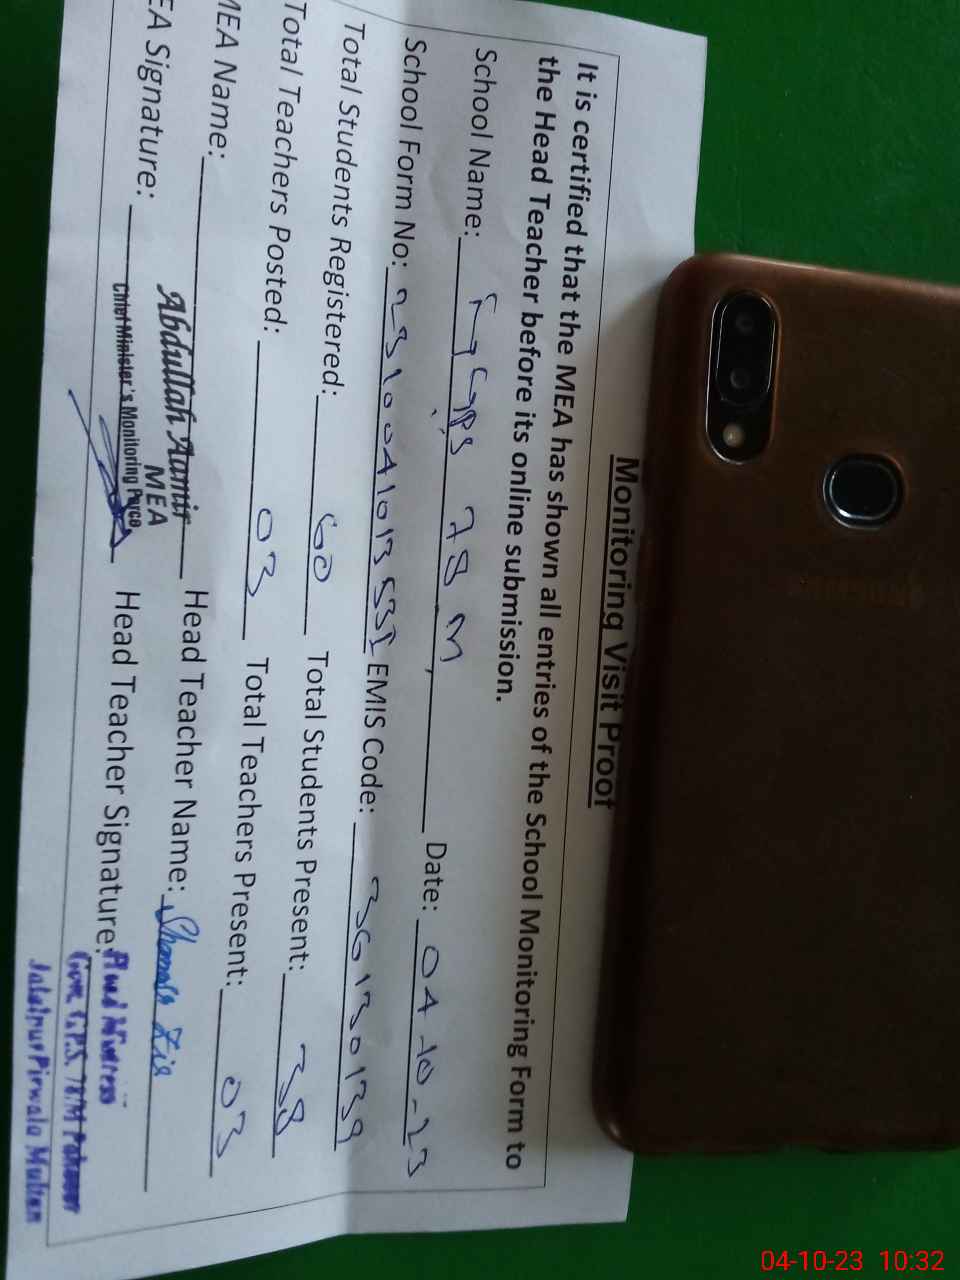 Monitoring Visit Proof
It is certified that the MEA has shown all entries of the School Monitoring Form to
the Head Teacher before its online submission.
School Name: GGPS 78 M, Date: 04-10-23
School Form No: EMIS Code: 36130139
Total Students Registered: 60 Total Students Present: 38
Total Teachers Posted: 03 Total Teachers Present: 03
MEA Name: Abdullah Aamir Head Teacher Name: Shamsa Zia
MEA
EA Signature: Chief Minister's Monitoring Force Head Teacher Signature:
Head Mistress
Govt. G.P.S. 78/M
Jalalpur Pirwala Multan
04-10-23 10:32